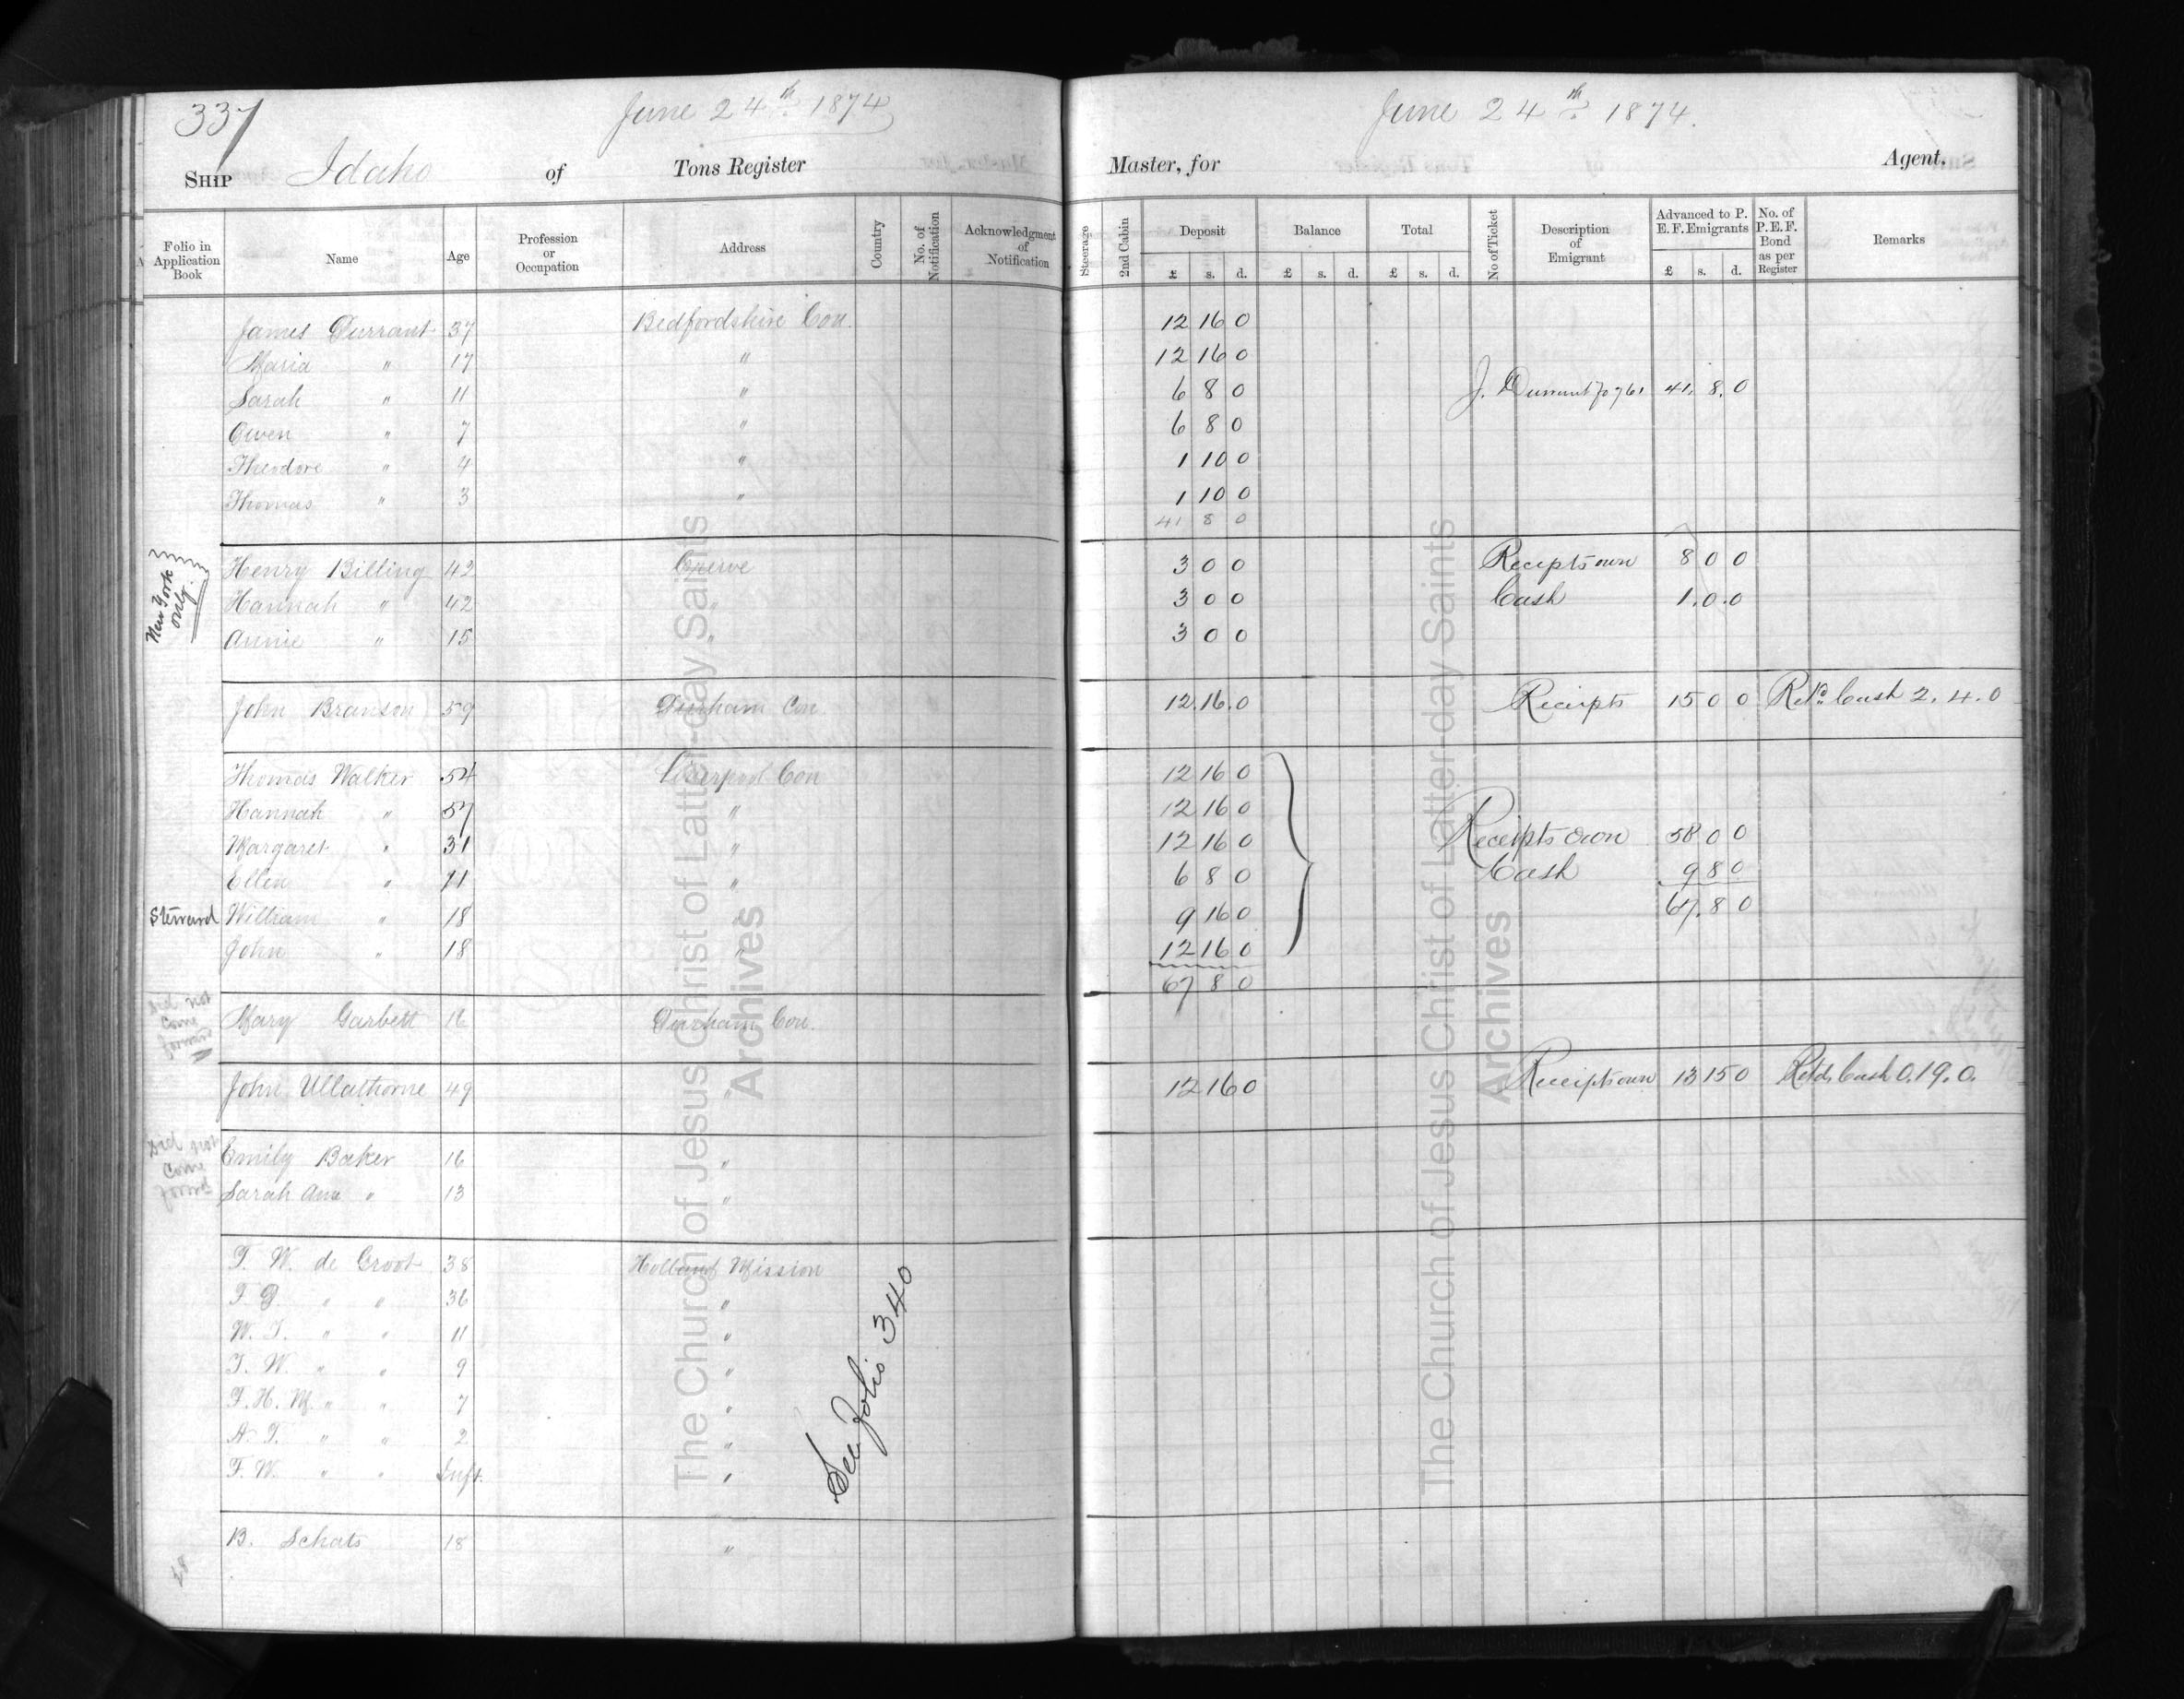 337
June 24th 1874
June 24th 1874.
SHIP Idaho of Tons Register Master, for Agent.
Folio in Application Book Name Age Profession or Occupation Address Country No. of Notification Acknowledgment of Notification Steerage 2nd Cabin Deposit £ s. d. Balance £ s. d. Total £ s. d. No of Ticket Description of Emigrant Advanced to P. E. F. Emigrants £ s. d. No. of P. E. F. Bond as per Register Remarks
James Durrant 37 Bedfordshire Con. 12 16 0
Maria " 17 " 12 16 0
Sarah " 11 " 6 8 0 J. Durrant fo 761 41. 8. 0
Owen " 7 " 6 8 0
Theodore " 4 " 1 10 0
Thomas " 3 " 1 10 0
41 8 0
New York only.
Henry Billing 42 3 0 0 Receipts own 8 0 0
Hannah " 42 " 3 0 0 Cash 1. 0. 0
Annie " 15 " 3 0 0
John Branson 59 Durham Con 12. 16. 0 Receipts 15 0 0 Retd. Cash 2. 4. 0
Thomas Walker 54 Liverpool Con 12 16 0
Hannah " 57 " 12 16 0
Margaret " 31 " 12 16 0 Receipts own 58 0 0
Ellen " 11 " 6 8 0 Cash 9 8 0
Steward William " 18 " 9 16 0 67. 8 0
John " 18 " 12 16 0
67 8 0
Did not come forward
Mary Garbett 16 Durham Con.
John Ullathorne 49 " 12 16 0 Receipts own 13 15 0 Retd. Cash 0. 19. 0.
Did not come forwd
Emily Baker 16 "
Sarah Ann " 13 "
T. W. de Groot 38 Holland Mission
T. D. " " 36 "
W. T. " " 11 "
T. W. " " 9 "
T. H. M. " " 7 "
A. T. " " 2 "
T. W. " " Inft. "
See folio 340
B. Schats 18 "
The Church of Jesus Christ of Latter-day Saints
Archives
The Church of Jesus Christ of Latter-day Saints
Archives